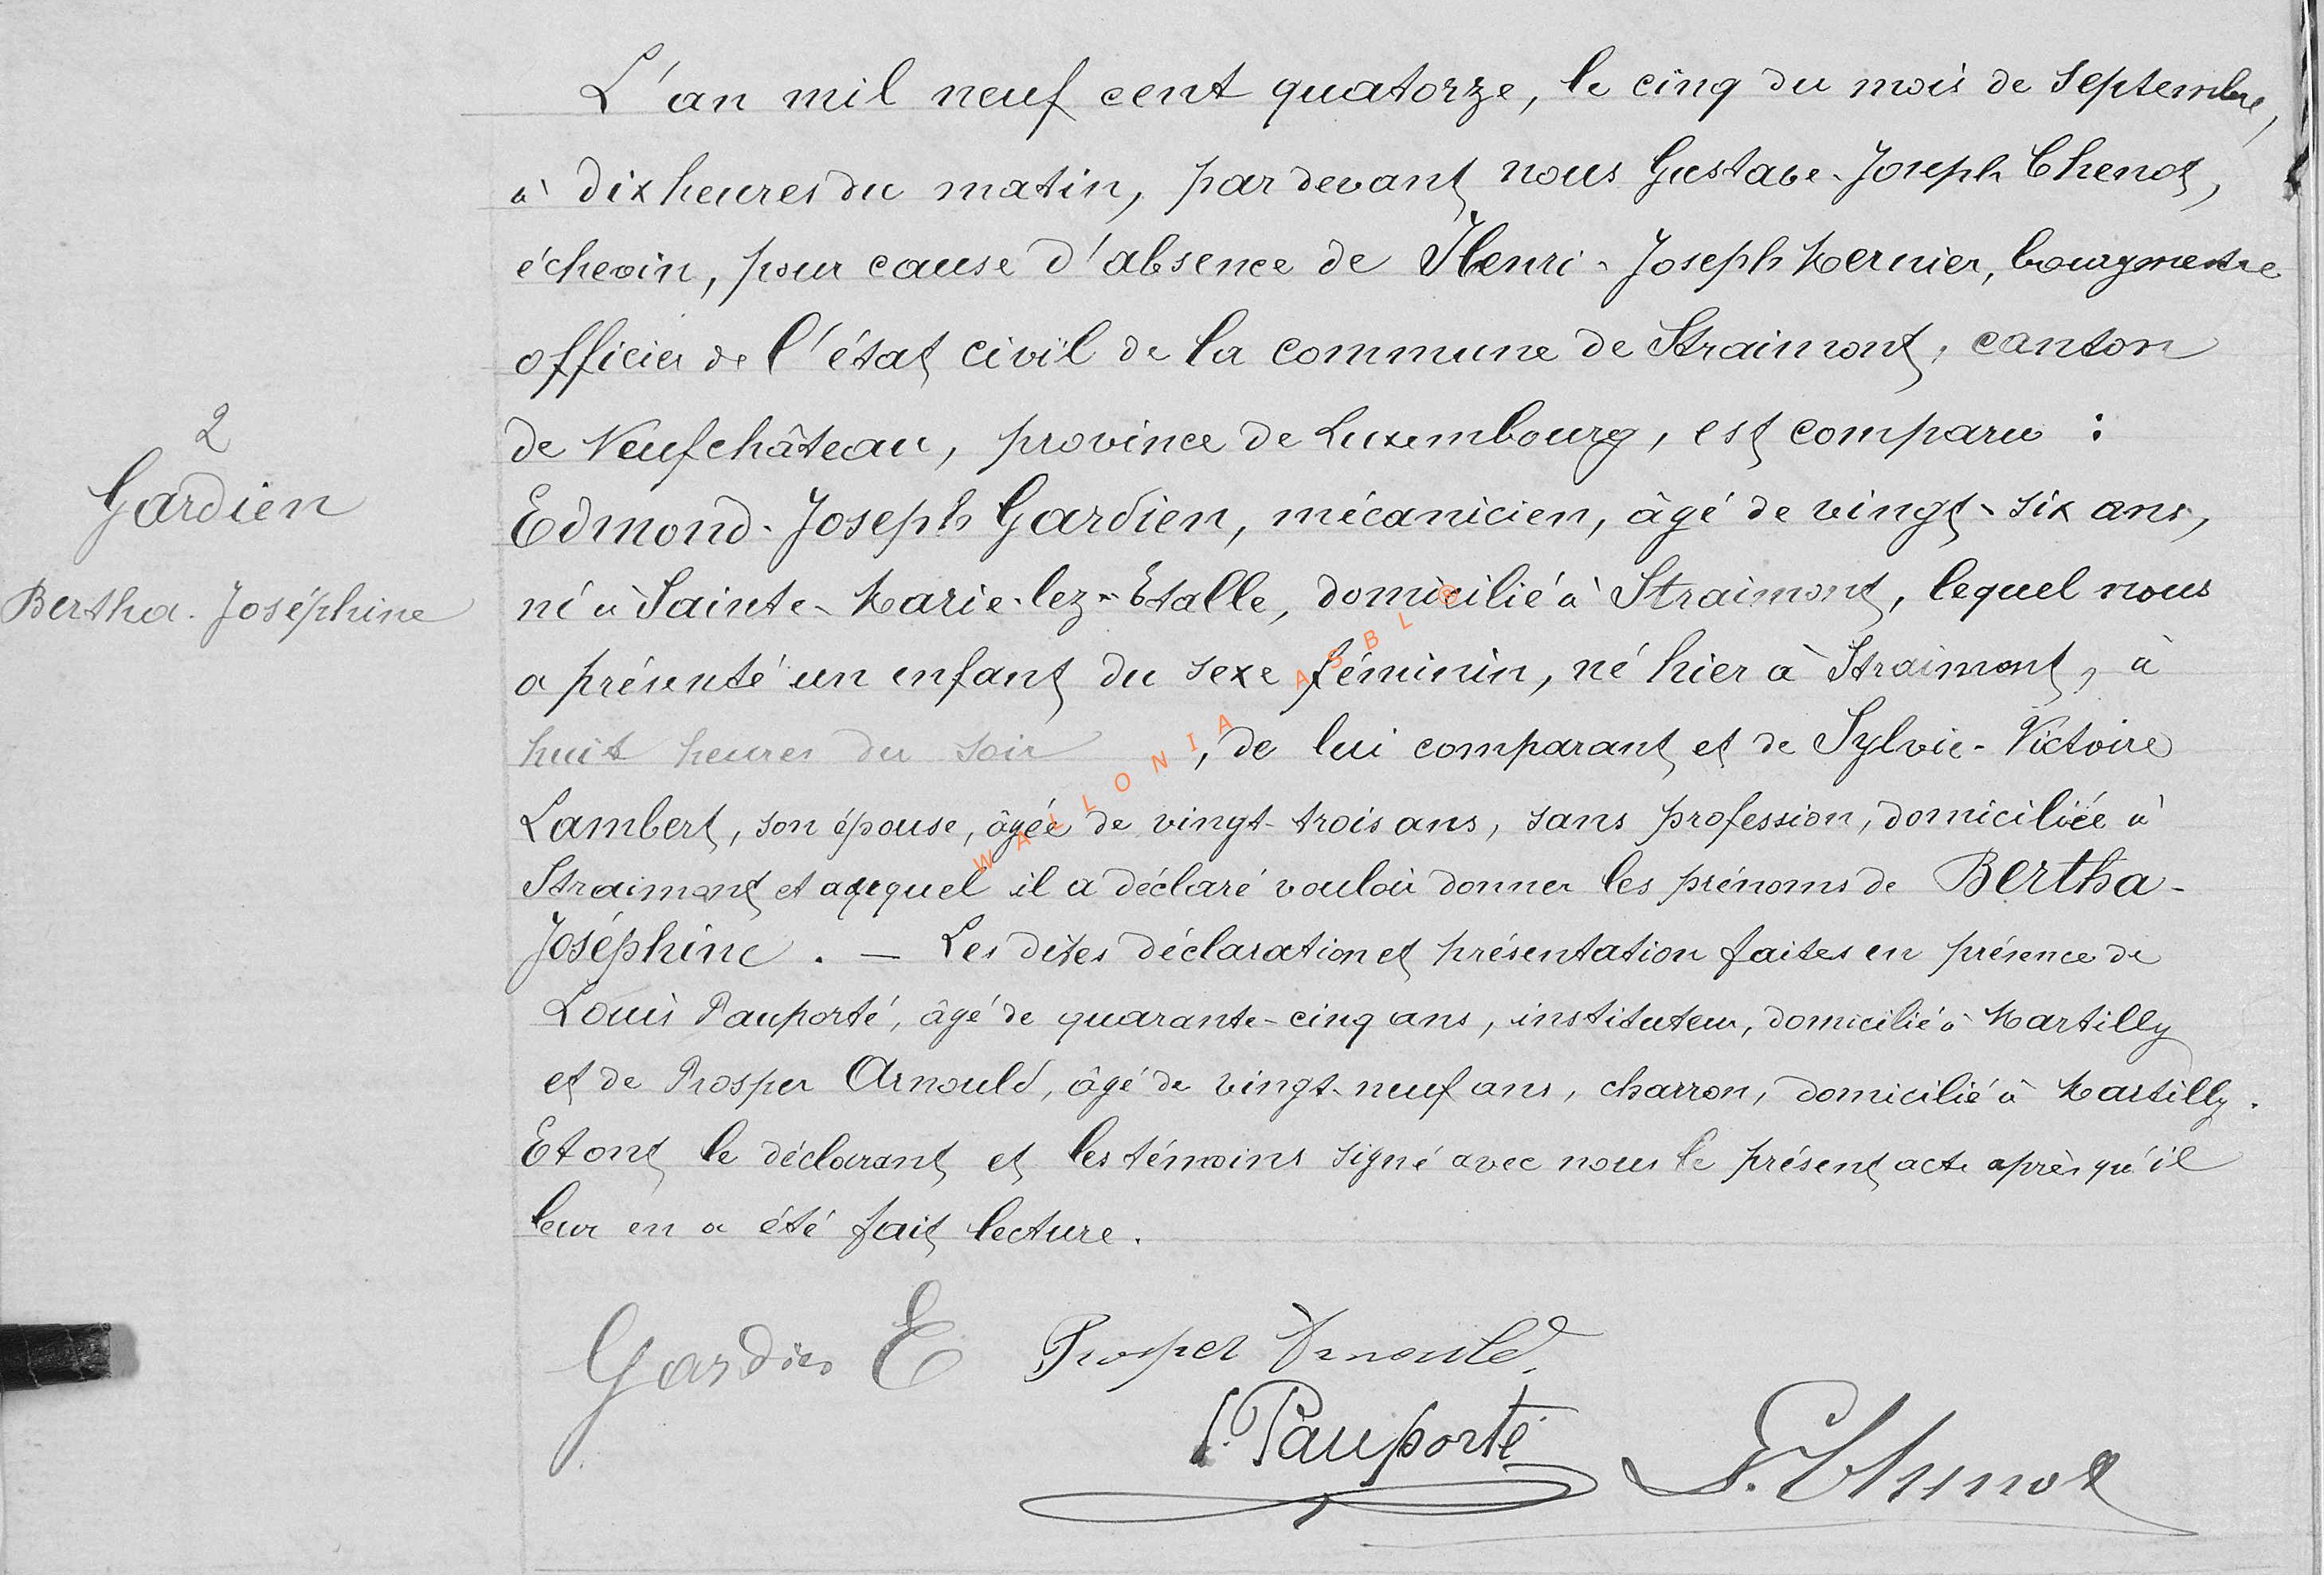 L'an mil neuf cent quatorze, le cinq du mois de Septembre,
à dix heures du matin, par devant nous Gustave-Joseph Chenot,
échevin, pour cause d'absence de Henri-Joseph Mernier, bourgmestre
officier de l'état civil de la commune de Straimont, canton
de Neufchâteau, province de Luxembourg, est comparu :
Edmond-Joseph Gardien, mécanicien, âgé de vingt-six ans,
né à Sainte-Marie-lez-Etalle, domicilié à Straimont, lequel nous
a présenté un enfant du sexe féminin, né hier à Straimont, à
huit heures du soir, de lui comparant et de Sylvie-Victoire
Lambert, son épouse, âgée de vingt-trois ans, sans profession, domiciliée à
Straimont et auquel il a déclaré vouloir donner les prénoms de Bertha-
Joséphine. — Les dites déclaration et présentation faites en présence de
Louis Pauporté, âgé de quarante-cinq ans, instituteur, domicilié à Martilly
et de Prosper Arnould, âgé de vingt-neuf ans, charron, domicilié à Martilly.
Et ont le déclarant et les témoins signé avec nous le présent acte après qu'il
leur en a été fait lecture.
2
Gardien
Bertha-Joséphine
Gardien E
Prosper Arnould
L. Pauporté
G. Chenot
WALLONIA ASBL ©